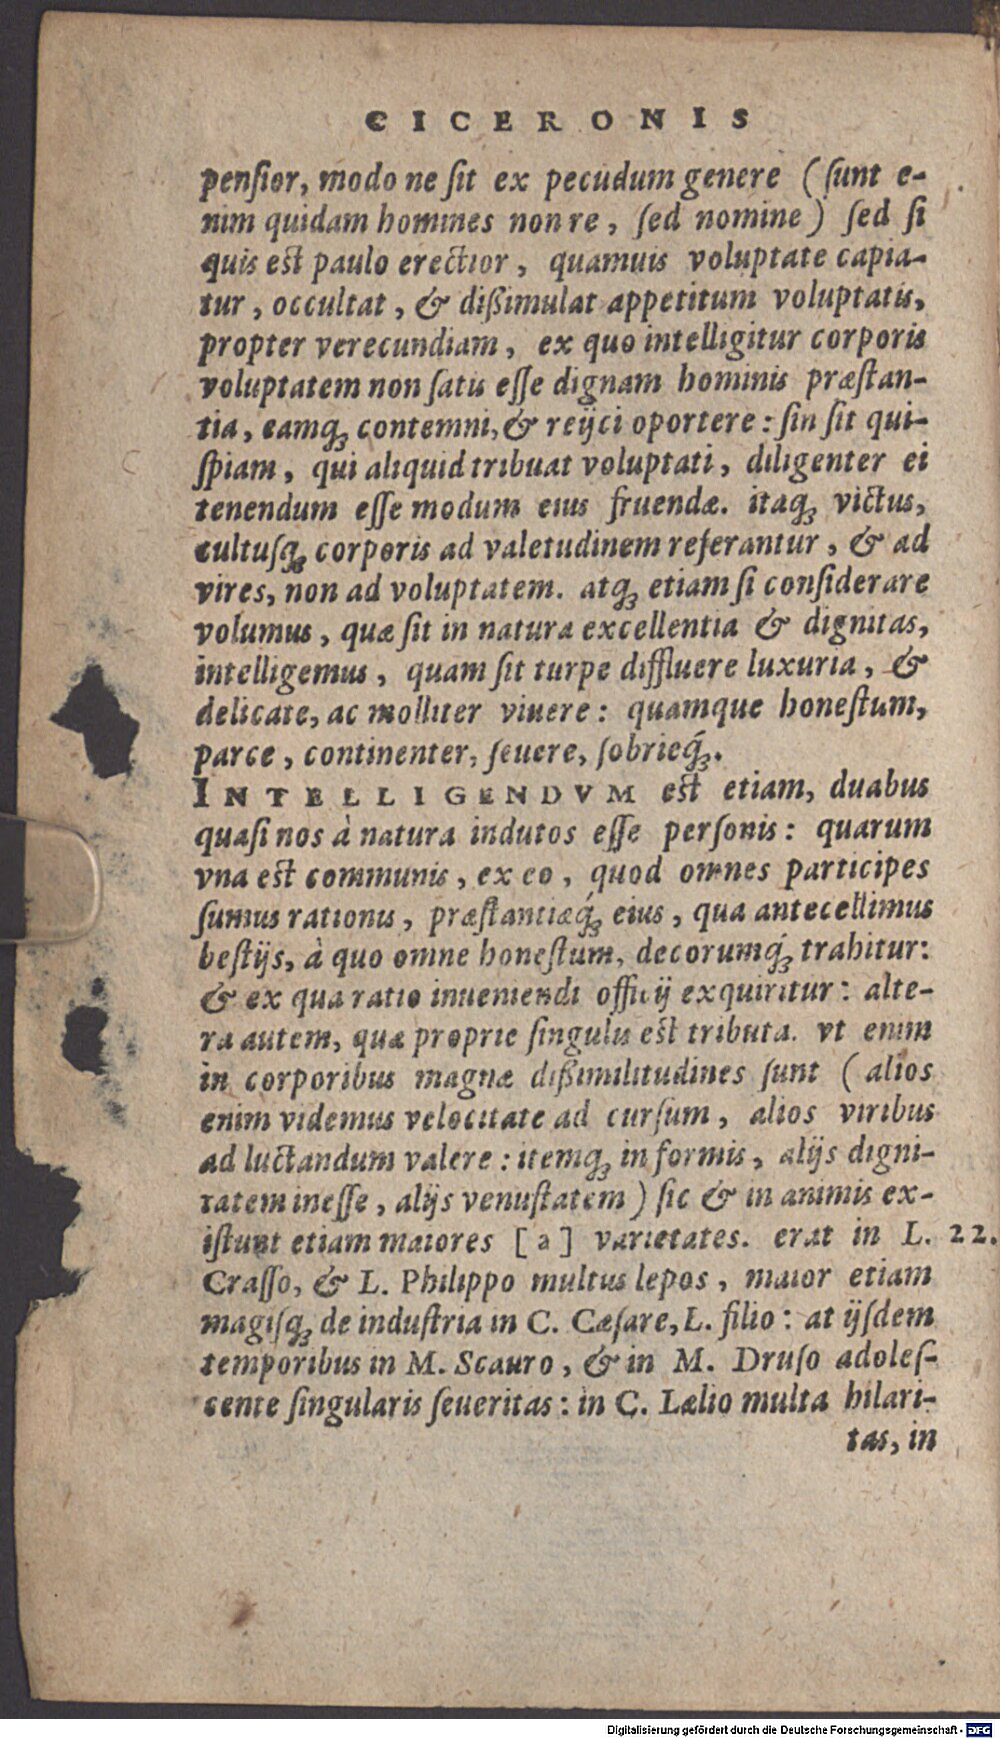 CICERONIS
penſior, modo ne ſit ex pecudum genere (ſunt e-
nim quidam homines non re, ſed nomine) ſed ſi
quis est paulo erectior, quamuis voluptate capia-
tur, occultat, & dißimulat appetitum voluptatis,
propter verecundiam, ex quo intelligitur corporis
voluptatem non ſatis eſſe dignam hominis præſtan-
tia, eamq́ꝫ contemni, & reijci oportere: ſin ſit qui-
ſpiam, qui aliquid tribuat voluptati, diligenter ei
tenendum eſſe modum eius fruendæ. itaqꝫ victus,
cultuſqꝫ corporis ad valetudinem referantur, & ad
vires, non ad voluptatem. atqꝫ etiam ſi conſiderare
volumus, quæ ſit in natura excellentia & dignitas,
intelligemus, quam ſit turpe diffluere luxuria, &
delicate, ac molliter viuere: quamque honeſtum,
parce, continenter, ſeuere, ſobrieq́ꝫ.
INTELLIGENDVM est etiam, duabus
quaſi nos à natura indutos eſſe perſonis: quarum
vna est communis, ex eo, quod omnes participes
ſumus rationis, præſtantiæq́ꝫ eius, qua antecellimus
beſtijs, à quo omne honeſtum, decorumq́ꝫ trahitur:
& ex qua ratio inueniendi officij exquiritur: alte-
ra autem, quæ proprie ſingulis est tributa. vt enim
in corporibus magnæ dißimilitudines ſunt (alios
enim videmus velocitate ad curſum, alios viribus
ad luctandum valere: itemqꝫ in formis, alijs digni-
tatem ineſſe, alijs venuſtatem) ſic & in animis ex-
iſtunt etiam maiores [a] varietates. erat in L. 22.
Craſſo, & L. Philippo multus lepos, maior etiam
magiſqꝫ de induſtria in C. Cæſare, L. filio: at ijſdem
temporibus in M. Scauro, & in M. Druſo adoleſ-
cente ſingularis ſeueritas: in C. Lælio multa hilari-
tas, in
Digitalisierung gefördert durch die Deutsche Forschungsgemeinschaft - DFG